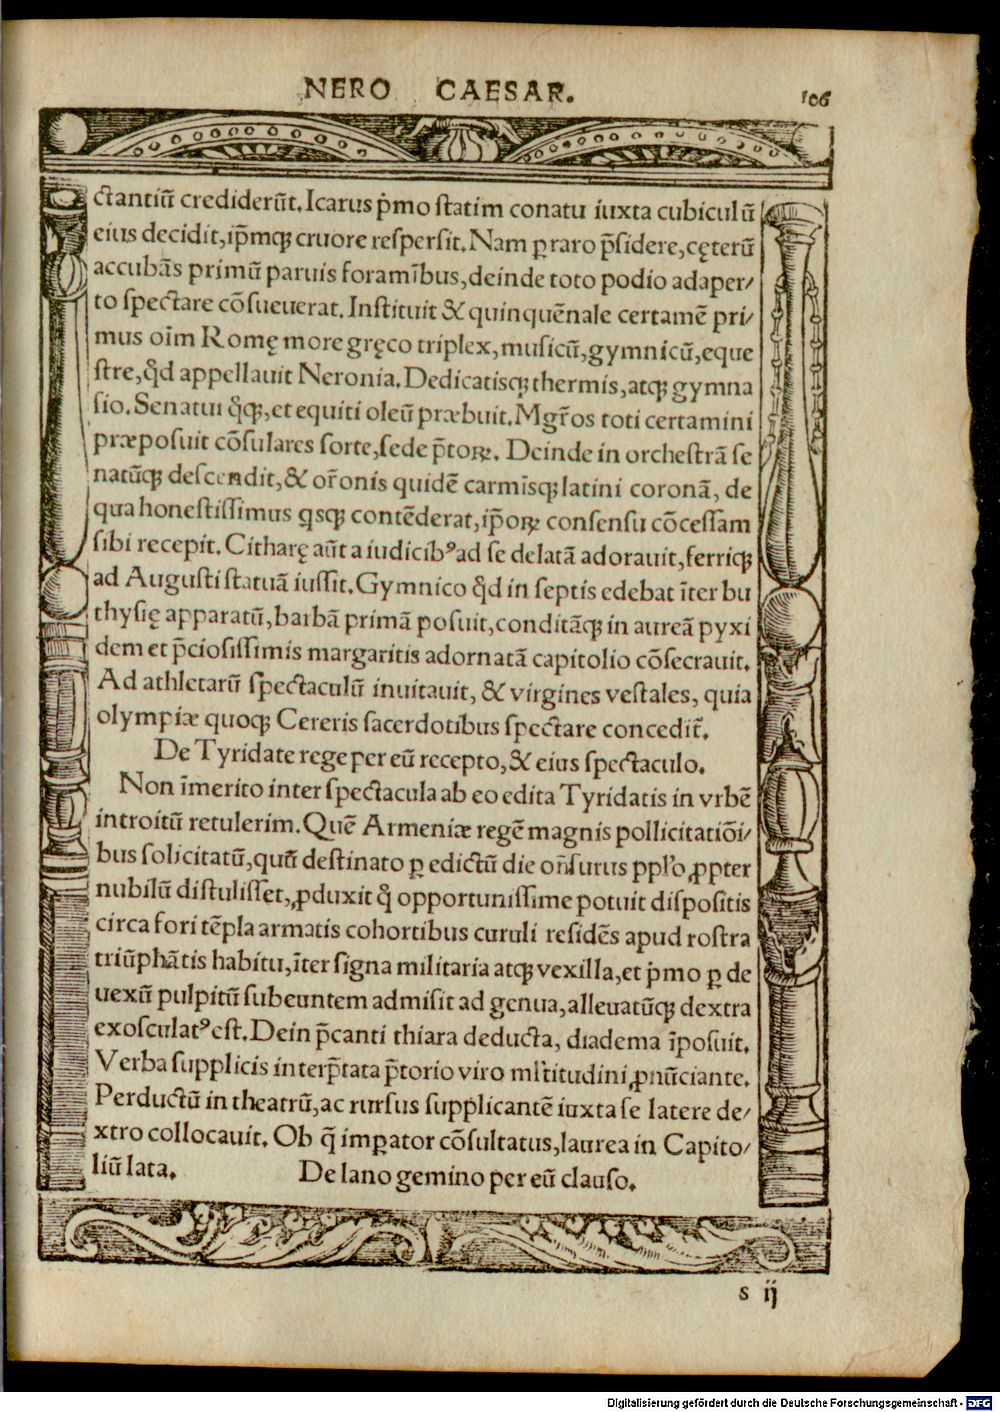 NERO CAESAR.
106
ctantiū crediderūt. Icarus p̍mo statim conatu iuxta cubiculū
eius decidit, ip̄mqꝫ cruore respersit. Nam ꝑ raro p̄sidere, cęterū
accubās primū paruis foramībus, deinde toto podio adaper/
to spectare cōsueuerat. Instituit & quinquēnale certamē pri/
mus oīm Romę more gręco triplex, musicū, gymnicū, eque
stre, qd̄ appellauit Neronia. Dedicatisqꝫ thermis, atqꝫ gymna
sio. Senatui q̊qꝫ, et equiti oleū præbuit. Mgr̄os toti certamini
præposuit cōsulares sorte, sede p̄toꝝ. Deinde in orchestrā se
natūqꝫ descendit, & or̄onis quidē carmīsqꝫ latini coronā, de
qua honestissimus qsqꝫ contēderat, ip̄oꝝ consensu cōcessam
sibi recepit. Citharę aūt a iudicibꝰ ad se delatā adorauit, ferriqꝫ
ad Augusti statuā iussit. Gymnico qd̄ in septis edebat īter bu
thysię apparatū, barbā primā posuit, conditāqꝫ in aureā pyxi
dem et p̄ciosissimis margaritis adornatā capitolio cōsecrauit.
Ad athletarū spectaculū inuitauit, & virgines vestales, quia
olympiæ quoqꝫ Cereris sacerdotibus spectare concedit̄.
De Tyridate rege per eū recepto, & eius spectaculo.
Non īmerito inter spectacula ab eo edita Tyridatis in vrbē
introitū retulerim. Quē Armeniæ regē magnis pollicitatiōi/
bus solicitatū, quū destinato ꝑ edictū die on̄surus ppl̄o ꝓpter
nubilū distulisset, ꝓduxit q̄ opportunissime potuit dispositis
circa fori tēpla armatis cohortibus curuli residēs apud rostra
triūphātis habitu, īter signa militaria atqꝫ vexilla, et p̍mo ꝑ de
uexū pulpitū subeuntem admisit ad genua, alleuatūqꝫ dextra
exosculatꝰ est. Dein p̄canti thiara deducta, diadema īposuit.
Verba supplicis interp̄tata p̄torio viro ml̄titudini ꝓnūciante.
Perductū in theatrū, ac rursus supplicantē iuxta se latere de/
xtro collocauit. Ob q̄ imꝑator cōsultatus, laurea in Capito/
liū lata. De Iano gemino per eū clauso.
s ij
Digitalisierung gefördert durch die Deutsche Forschungsgemeinschaft - DFG